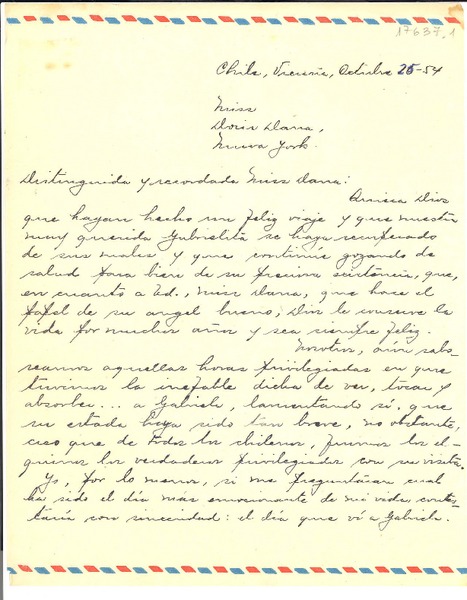 17637.1
Chile, Vicuña, Octubre 25-54
Miss
Doris Dana,
Nueva York.
Distinguida y recordada Miss Dana:
Quiera Dios
que hayan hecho un feliz viaje y que nuestra
muy querida Gabrielita se haya recuperado
de sus males y que continúe gozando de
salud para bien de su preciosa existencia, que,
en cuanto a Ud., Miss Dana, que hace el
papel de su angel bueno, Dios le conserve la
vida por muchos años y sea siempre feliz.
Nosotros, aún sabo-
reamos aquellas horas privilegiadas en que
tuvimos la inefable dicha de ver, tocar y
absorber... a Gabriela, lamentando si, que
su estada haya sido tan breve, no obstante,
creo que de todos los chilenos, fuimos los el-
quinos los verdaderos privilegiados con su visita.
Yo, por lo menos, si me preguntaran cual
ha sido el día más emocionante de mi vida, contes-
taría con sinceridad: el día que ví a Gabriela.